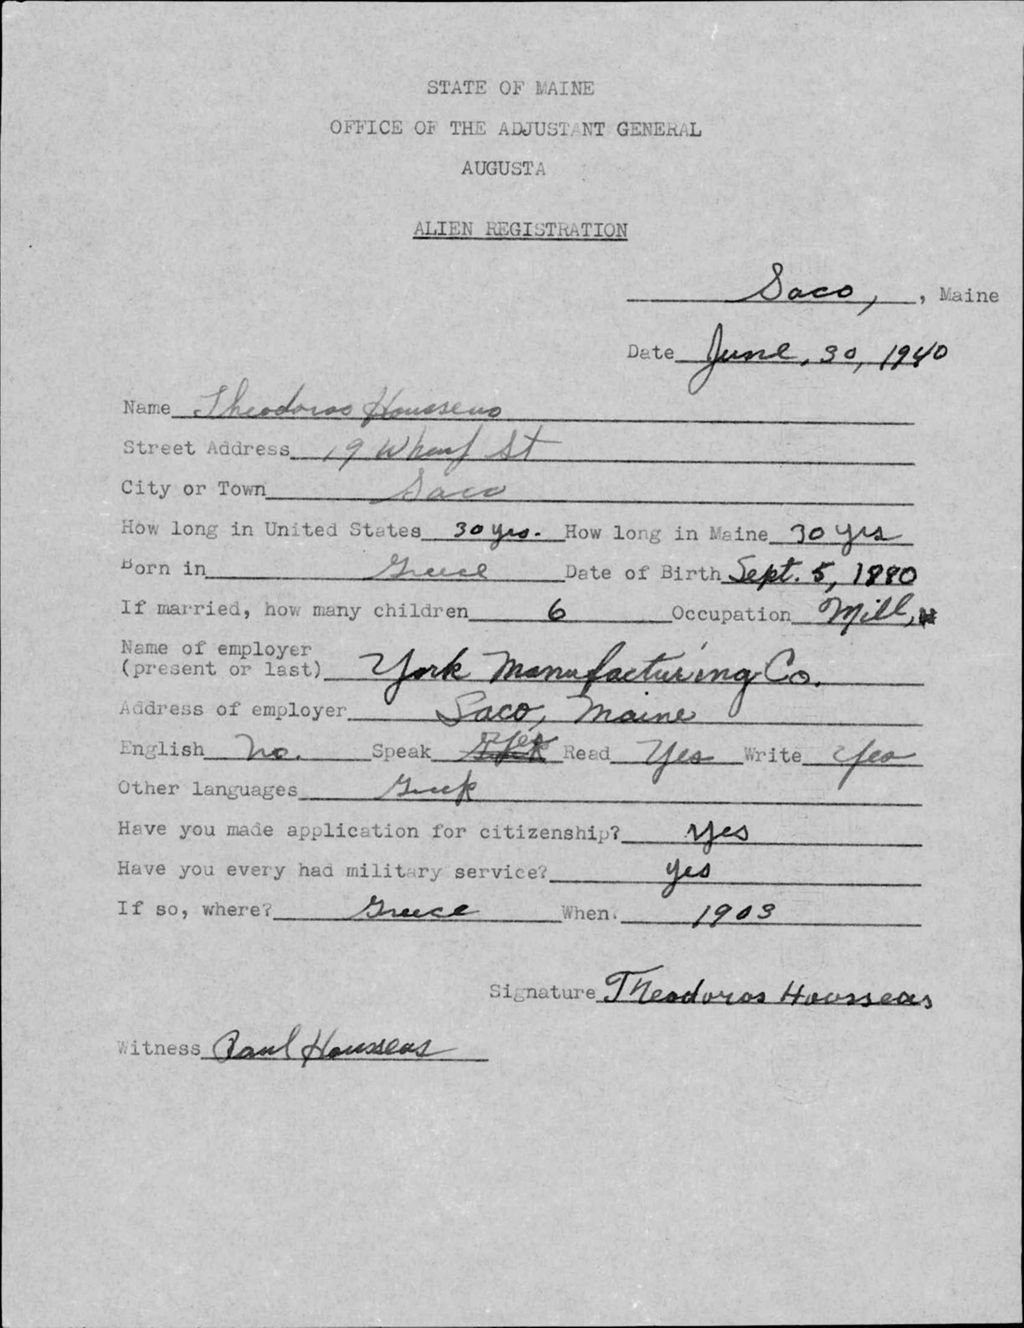 STATE OF MAINE
OFFICE OF THE ADJUSTANT GENERAL
AUGUSTA
ALIEN REGISTRATION
Saco, , Maine
Date June, 30, 1940
Name Theodoros Housseas
Street Address 19 Wharf St
City or Town Saco
How long in United States 30 yrs. How long in Maine 30 yrs
Born in Greece Date of Birth Sept. 5, 1880
If married, how many children 6 Occupation Mill,
Name of employer
(present or last) York Manufacturing Co.
Address of employer Saco, Maine
English No. Speak Yes Read Yes Write Yes
Other languages Greek
Have you made application for citizenship? Yes
Have you every had military service? yes
If so, where? Greece When. 1903
Signature Theodoros Housseas
Witness Paul Housseas